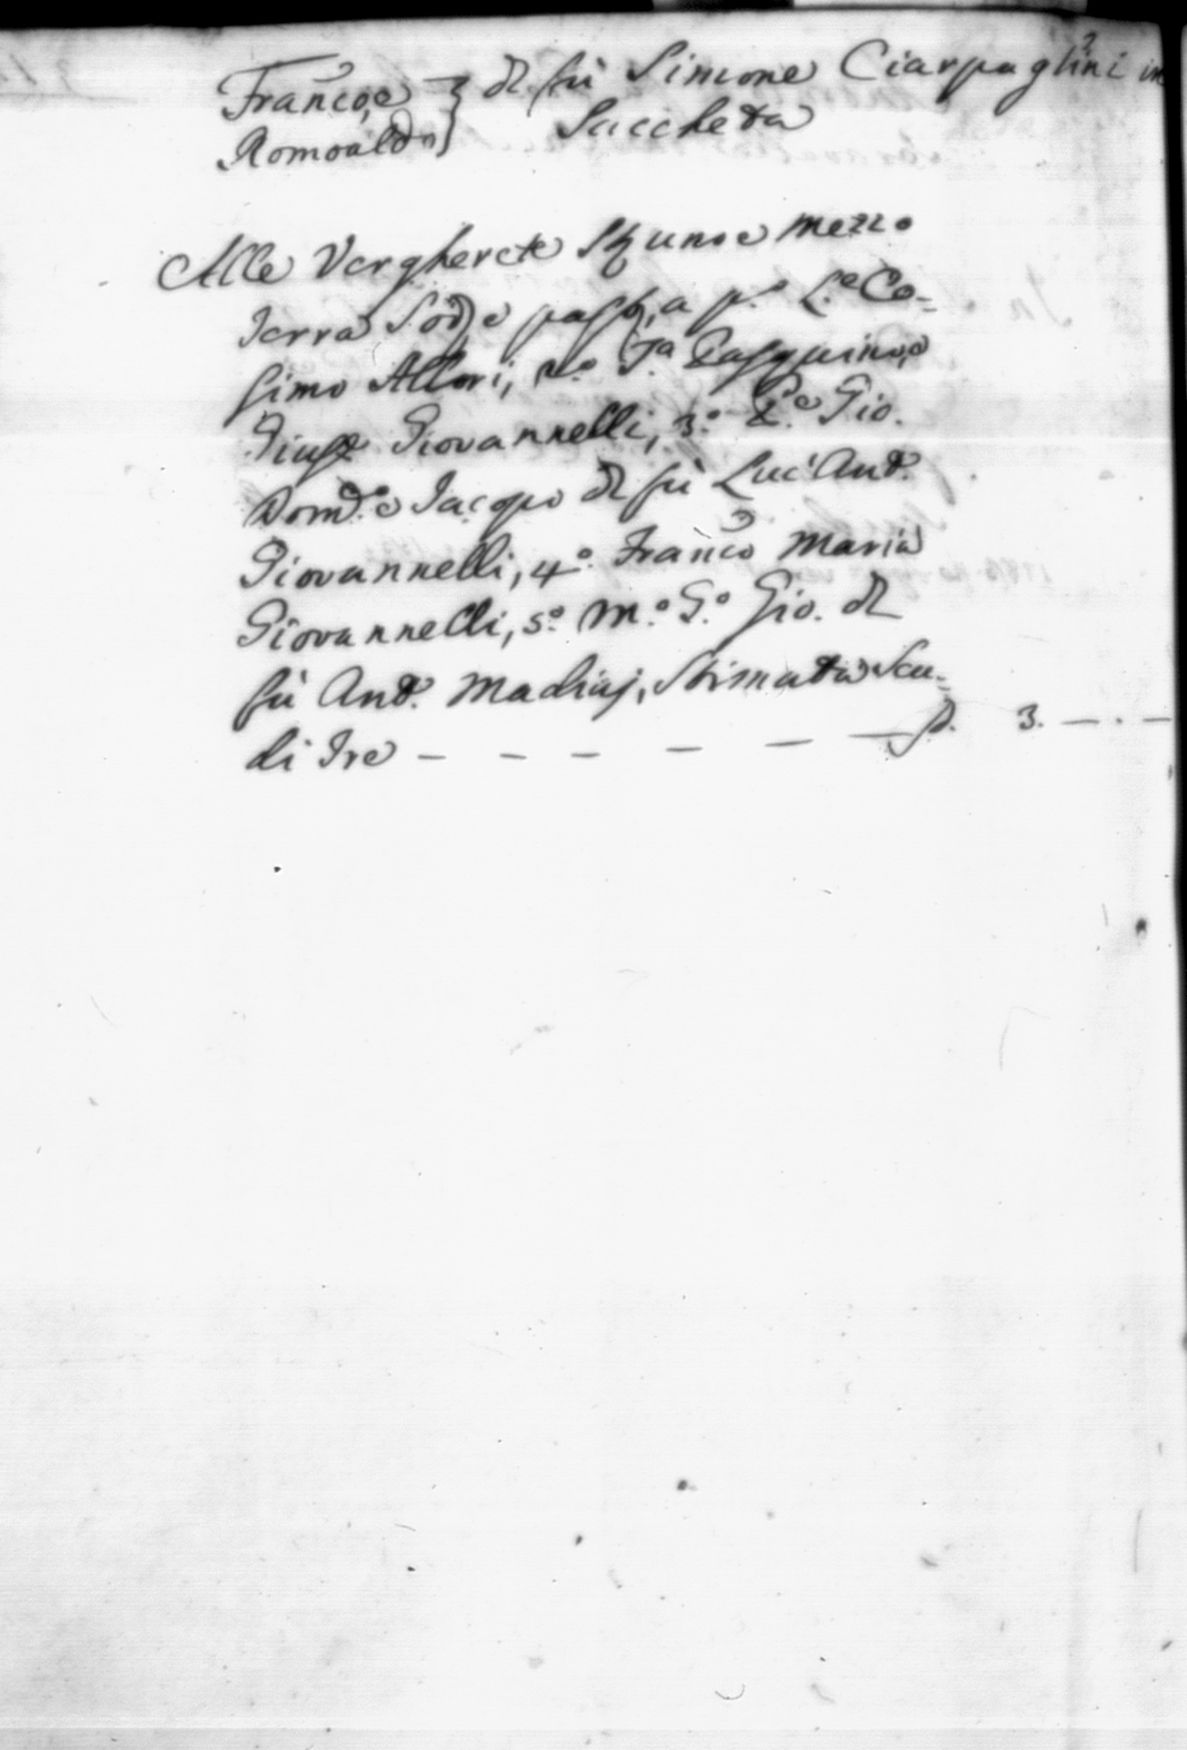 Franco, e } dl fù Simone Ciarpaglini in
Romoaldo } Saccheta
Alle Vergherete St uno e mezzo
Terra Soda e past, a p.º L.e Co=
simo Allori, 2.º T.a Pasquino, e
Giuse Giovannelli, 3.º L.e Gio.
Dom.co e Jacopo dl fù Luc'Ant.
Giovannelli, 4.º Franco Maria
Giovannelli, 5.º M.º G.º Gio. dl
fù Ant. Madiaj, Stimata Scu=
di Tre — — — — — — S. 3. — . —